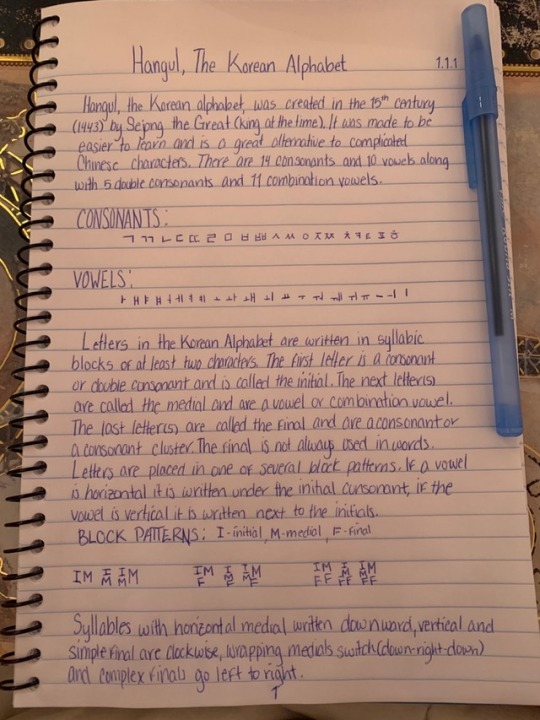 Hangul, The Korean Alphabet 1.1.1
Hangul, the Korean alphabet, was created in the 15th century
(1443) by Sejong the Great (king at the time). It was made to be
easier to learn and is a great alternative to complicated
Chinese characters. There are 14 consonants and 10 vowels along
with 5 double consonants and 11 combination vowels.
CONSONANTS:
ㄱ ㄲ ㄴ ㄷ ㄸ ㄹ ㅁ ㅂ ㅃ ㅅ ㅆ ㅇ ㅈ ㅉ ㅊ ㅋ ㅌ ㅍ ㅎ
VOWELS:
ㅏ ㅐ ㅑ ㅒ ㅓ ㅔ ㅕ ㅖ ㅗ ㅘ ㅙ ㅚ ㅛ ㅜ ㅝ ㅞ ㅟ ㅠ ㅡ ㅢ ㅣ
Letters in the Korean Alphabet are written in syllabic
blocks of at least two characters. The first letter is a consonant
or double consonant and is called the initial. The next letter(s)
are called the medial and are a vowel or combination vowel.
The last letter(s) are called the final and are a consonant or
a consonant cluster. The final is not always used in words.
Letters are placed in one of several block patterns. If a vowel
is horizontal it is written under the initial consonant, if the
vowel is vertical it is written next to the initials.
BLOCK PATTERNS: I-initial, M-medial, F-final
IM I IM IM I IM IM I IM
M M F M MF FF M M
F FF FF
Syllables with horizontal medial written downward, vertical and
simple final are clockwise, wrapping medials switch (down-right-down)
and complex finals go left to right.